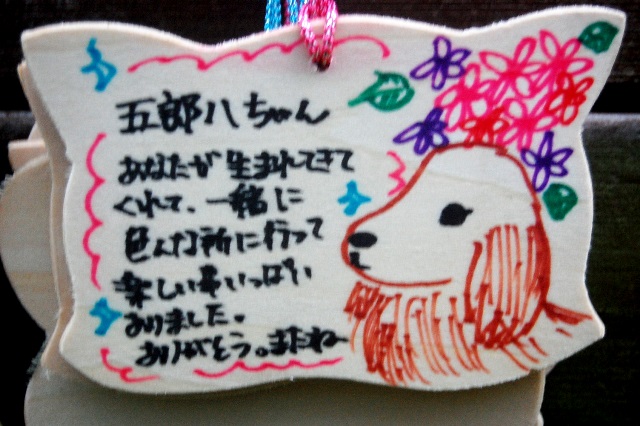 五郎八ちゃん
あなたが生まれてきて
くれて、一緒に
色んな所に行って
楽しい事いっぱい
ありました。
ありがとう。またねー